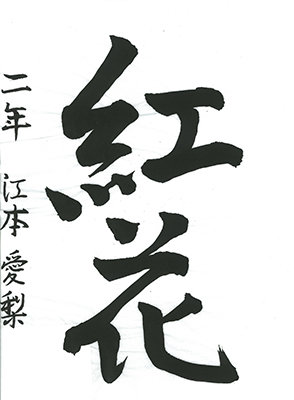 紅花
二年 江本愛梨